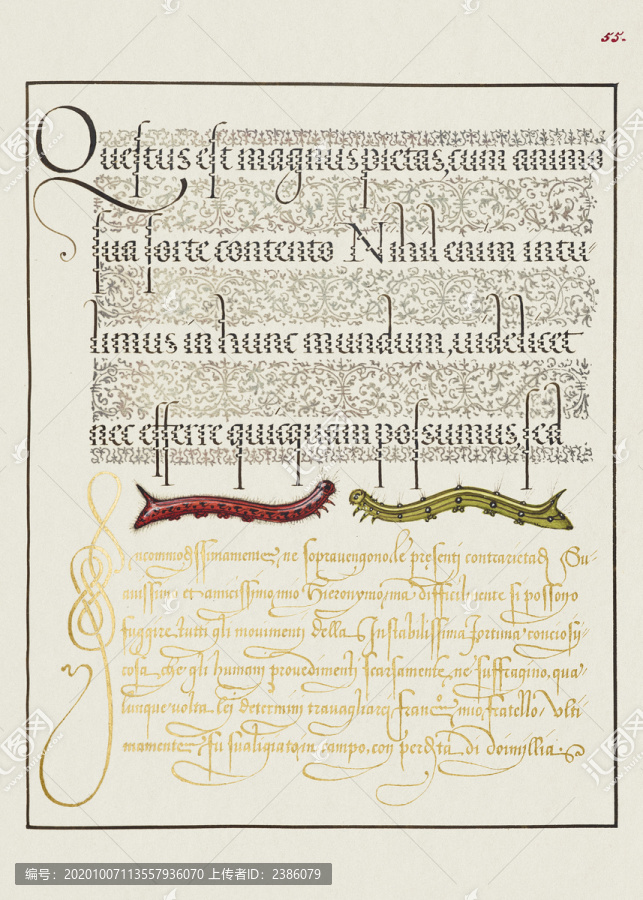 55.
Questus est magnus pietas, cum animo
sua sorte contento Nihil enim intu-
limus in hunc mundum, uidelicet
nec efferre quicquam possumus, sed
Incommodissimamente, ne sopravengono le presenti contrarietadi Su-
avissimo et amicissimo mio Hieronymo, ma difficilmente si possono
fuggire tutti gli movimenti della Instabilissima fortuna conciosij
cosa che gli humani provedimenti scarsamente ne suffragino, qua-
lunque volta lei determini travagliarci. Franco mio fratello Ulti-
mamente fu svaligiato in campo, con perdita di doi millia
编号: 20201007113557936070 上传者ID: 2386079